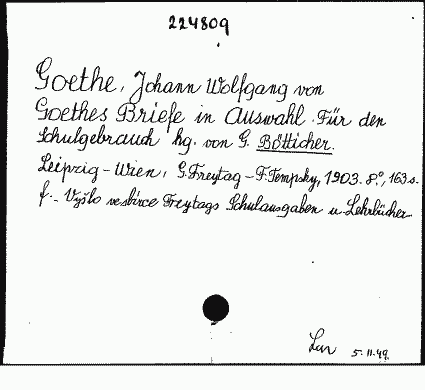 224809
Goethe, Johann Wolfgang von
Goethes Briefe in Auswahl. Für den
Schulgebrauch hg. von G. Bötticher.
Leipzig-Wien, G. Freytag-F. Tempsky, 1903. 8°, 163 s.
f. - Vyšlo ve sbírce Freytags Schulausgaben u. Lehrbücher.
5.11.49.